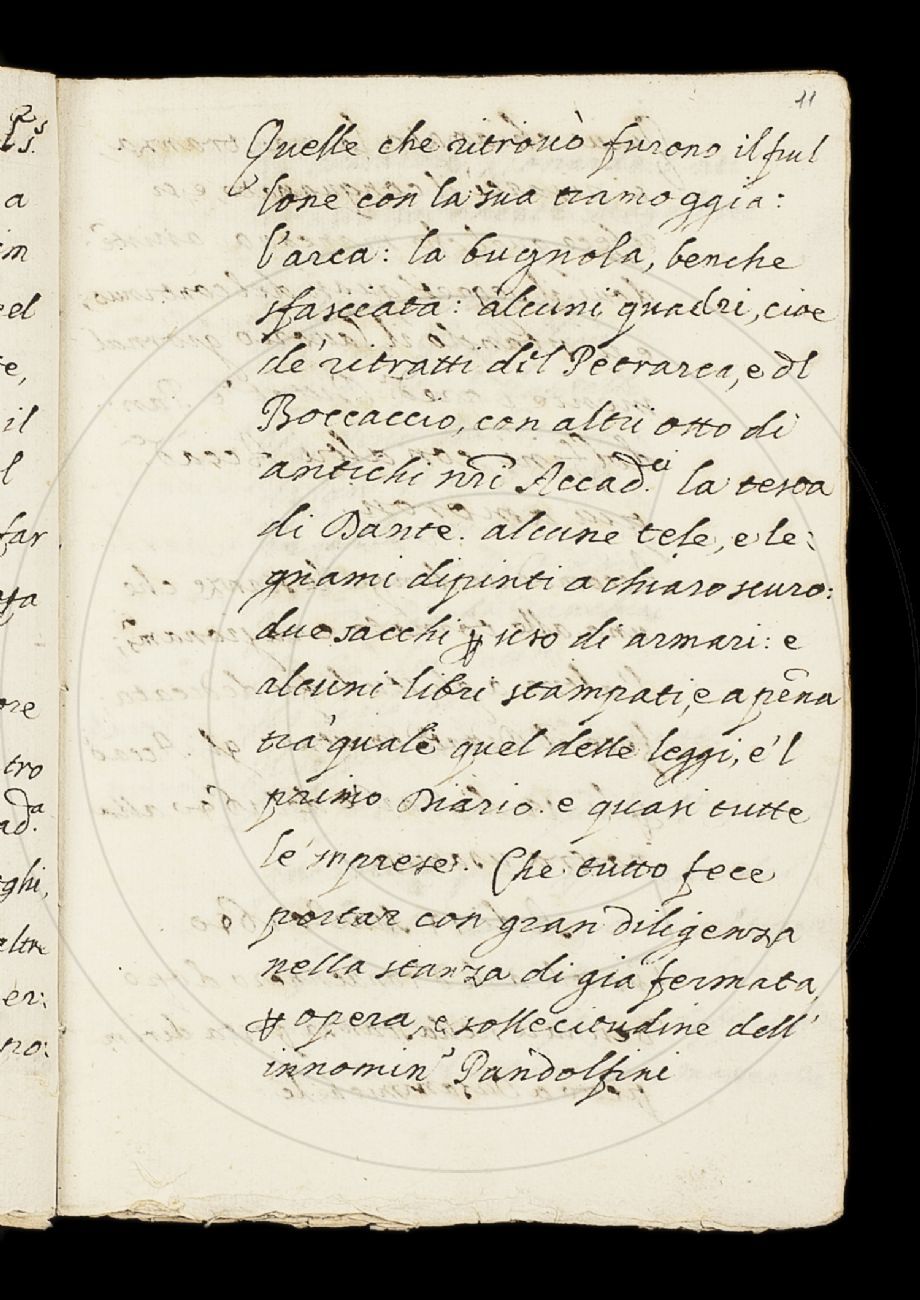 11
Quelle che ritrouò furono il frul
lone con la sua tramoggia:
l'arca: la bugnola, benche
sfasciata: alcuni quadri, cioe
de' ritratti del Petrarca, e dl
Boccaccio, con altri otto di
antichi nri Accad.ci la testa
di Dante. alcune tele, e le:
gnami dipinti a chiaro scuro:
due sacchi ꝑ uso di armari: e
alcuni libri stampati, e a pēna
tra' quali quel delle leggi, e 'l
primo Diario. e quasi tutte
le 'mprese. Che tutto fece
portar con gran diligenza
nella stanza di gia fermata
ꝑ opera, e sollecitudine dell'
innomin.º Pandolfini
a
im
el
te,
il
l
far
ore
tro
ad.a
ghi,
altre
er:
no: